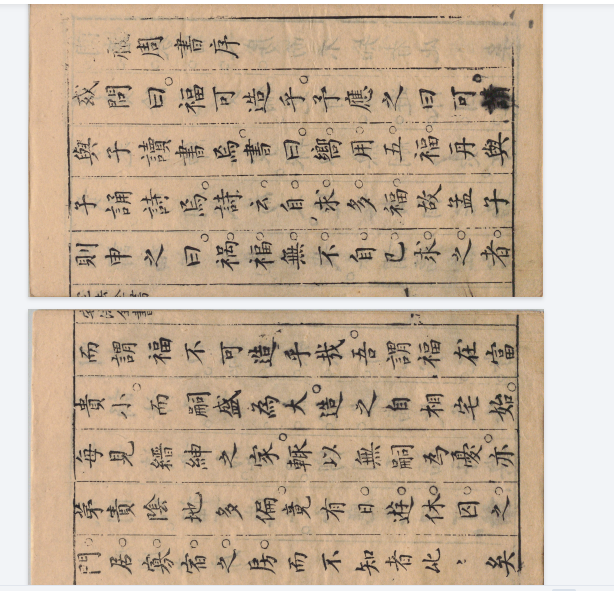 周書序
或問曰。福可造乎。予應之曰。可。請
與子讀書焉。書曰。嚮用五福。再與
子誦詩焉。詩云。自求多福。故孟子
則申之曰。禍福無不自己求之者。
而謂福不可造乎哉。吾謂福在富
貴小。而嗣盛為大。造之自相宅始。
每見縉紳之家。輒以無嗣為憂。亦
第責陰地多偏。竟有日遊。休囚之
門。居寡宿之房。而不知者比比矣